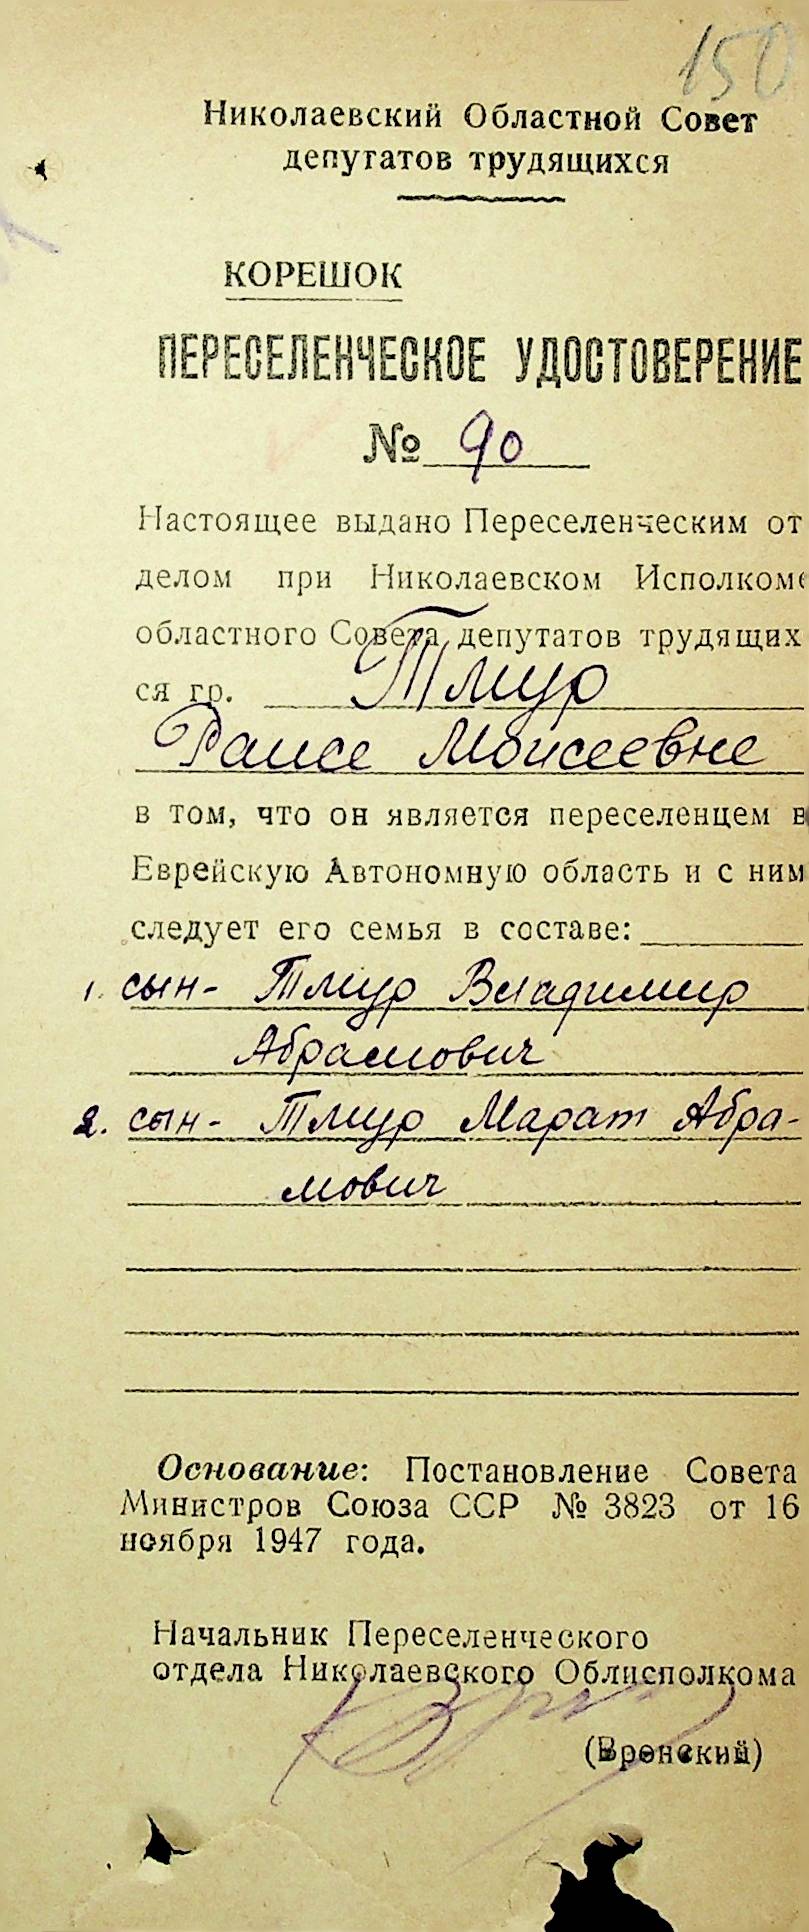 150
Николаевский Областной Совет
депутатов трудящихся
КОРЕШОК
ПЕРЕСЕЛЕНЧЕСКОЕ УДОСТОВЕРЕНИЕ
№ 90
Настоящее выдано Переселенческим от
делом при Николаевском Исполкоме
областного Совета депутатов трудящих
ся гр. Тмур
Раисе Моисеевне
в том, что он является переселенцем в
Еврейскую Автономную область и с ним
следует его семья в составе:
1. сын - Тмур Владимир
Абрамович
2. сын - Тмур Марат Абра-
мович
Основание: Постановление Совета
Министров Союза ССР № 3823 от 16
ноября 1947 года.
Начальник Переселенческого
отдела Николаевского Облисполкома
(Вронский)